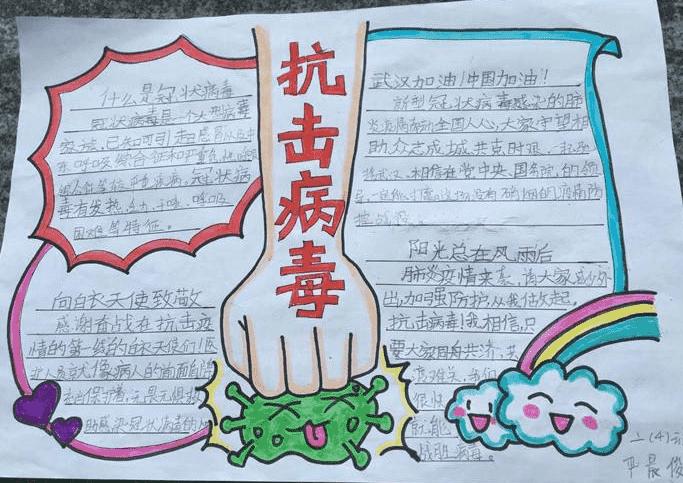 抗击病毒
什么是冠状病毒
冠状病毒是一个大型病毒
家族,已知可引起感冒以及中
东呼吸综合征和严重急性呼吸
综合征等较严重疾病。冠状病
毒有发热、乏力、干咳、呼吸
困难等特征。
向白衣天使致敬
感谢奋战在抗击疫
情的第一线的白衣天使们!医
就像病人的
保护者,无畏无惧
感染冠状病毒的
武汉加油!中国加油!
新型冠状病毒感染的肺
炎疫情牵动全国人心,大家守望相
助,众志成城,共克时艰,一起
武汉,相信在党中央、国务院的领
导,一定能打赢这场没有硝烟的疫情防
控战役。
阳光总在风雨后
肺炎疫情来袭,请大家减少外
出,加强防护,从我做起,
抗击病毒!我相信,只
要大家同舟共济,共
度难关,我们
很快
就能
战胜病毒。
六(4)